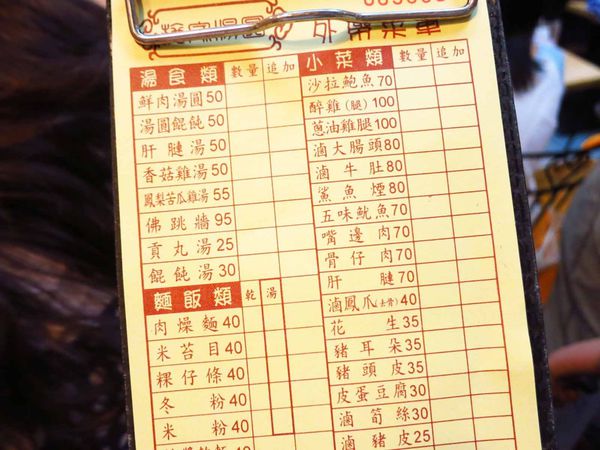 外帶菜單
湯食類 數量 追加
鮮肉湯圓 50
湯圓餛飩 50
肝腱湯 50
香菇雞湯 50
鳳梨苦瓜雞湯 55
佛跳牆 95
貢丸湯 25
餛飩湯 30
麵飯類 乾 湯
肉燥麵 40
米苔目 40
粿仔條 40
冬粉 40
米粉 40
小菜類 數量 追加
沙拉鮑魚 70
醉雞(腿) 100
蔥油雞腿 100
滷大腸頭 80
滷牛肚 80
鯊魚煙 80
五味魷魚 70
嘴邊肉 70
骨仔肉 70
肝腱 70
滷鳳爪(去骨) 40
花生 35
豬耳朵 35
豬頭皮 35
皮蛋豆腐 30
滷筍絲 30
滷豬皮 25